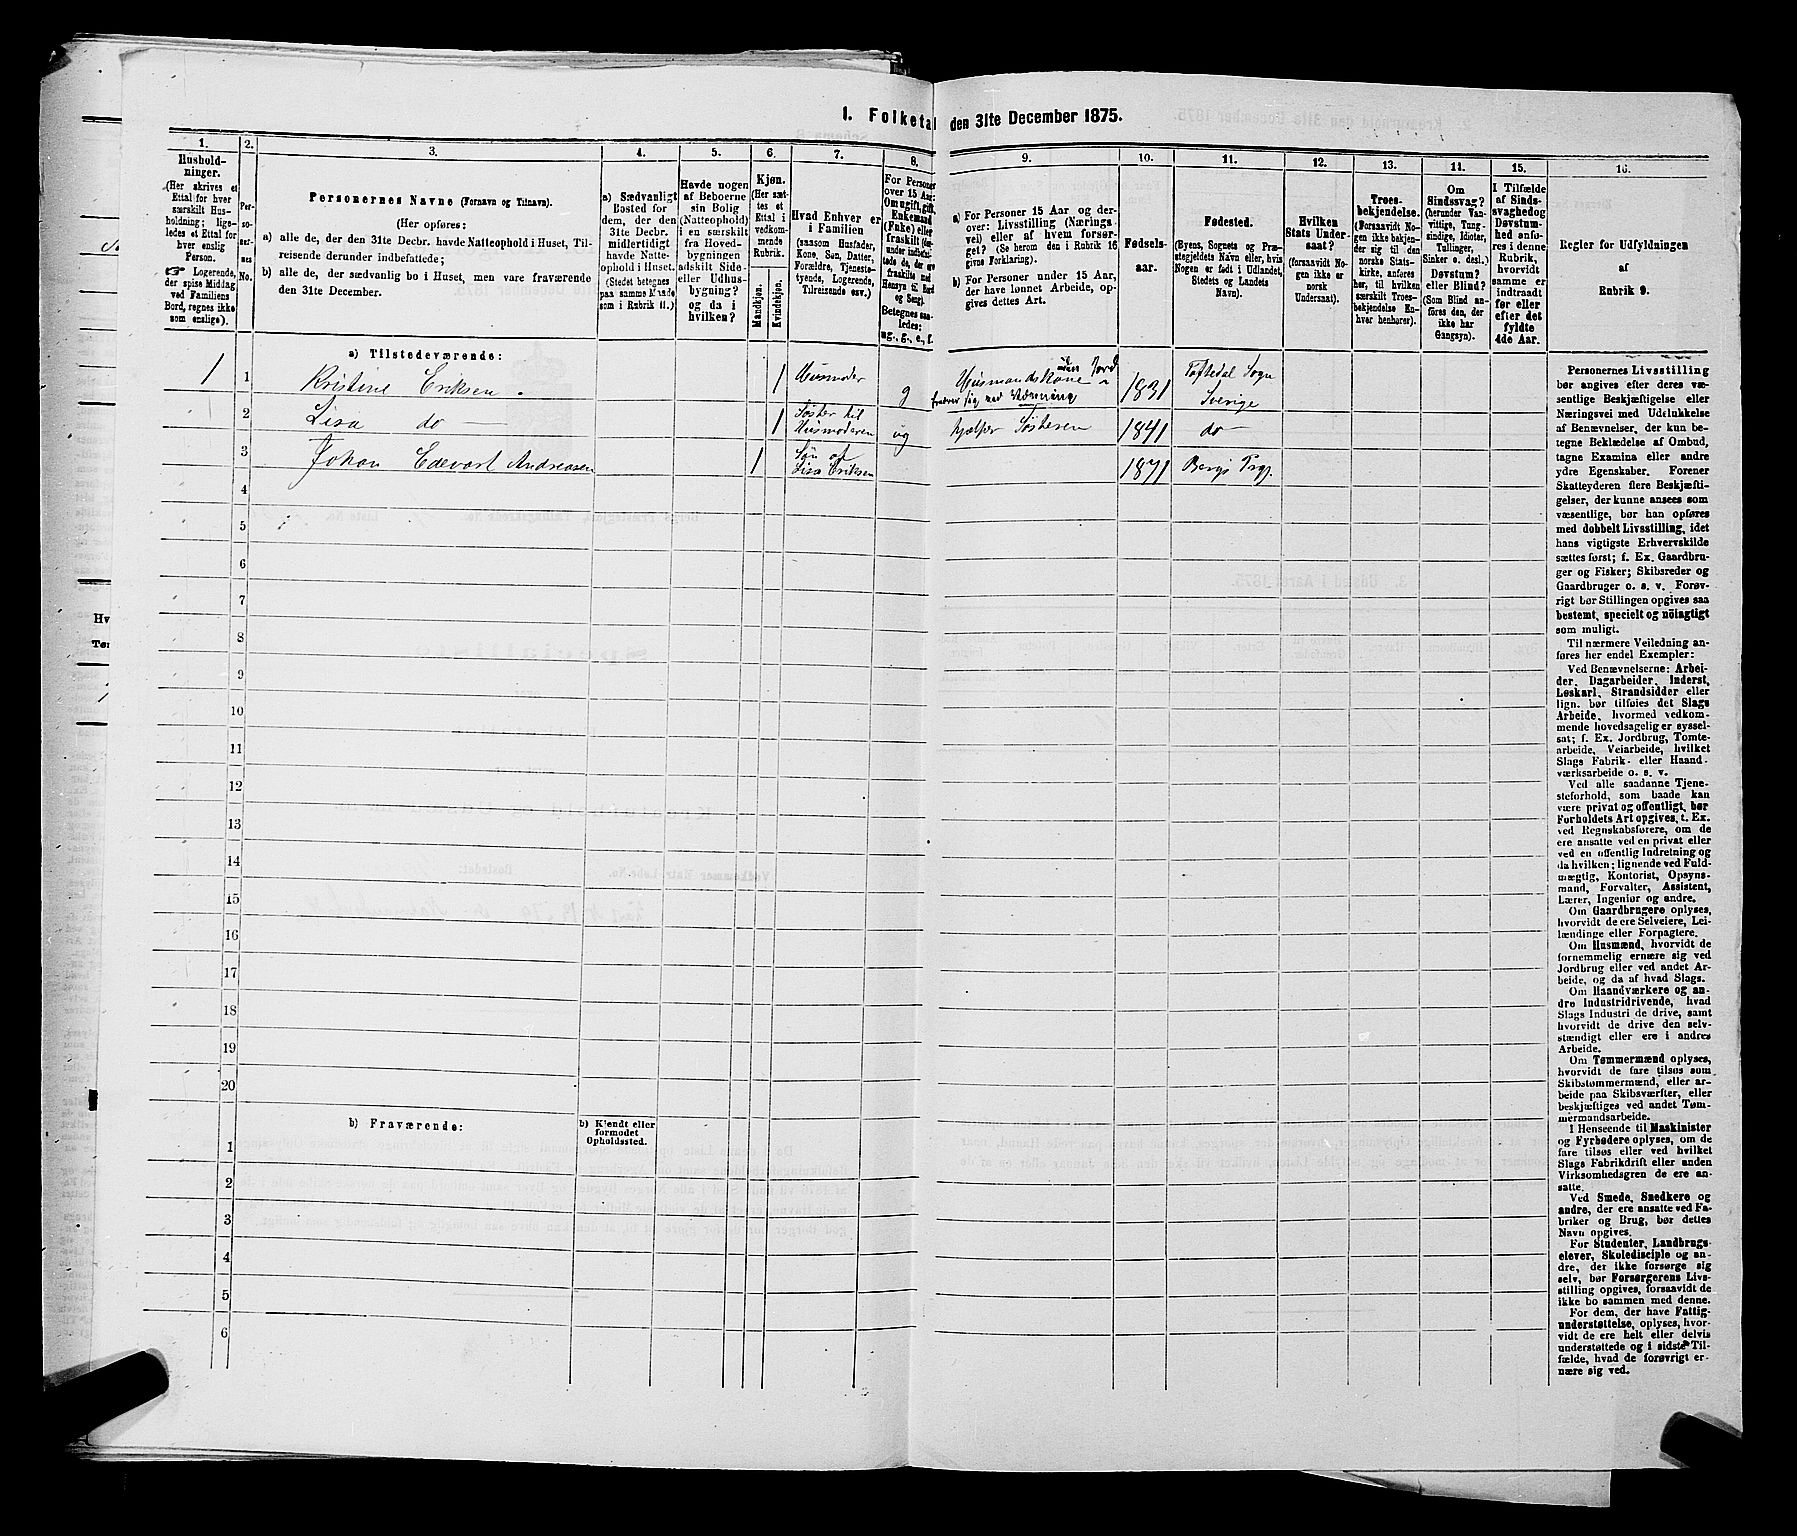 1. Folketal den 31te December 1875.
1.
Hushold-
ninger.
(Her skrives et
Ettal for hver
særskilt Hus-
holdning; lige-
ledes et Ettal for
hver enslig
Person.
☞ Logerende,
der spise Middag
ved Familiens
Bord, regnes ikke
som enslige).
2.
Per-
so-
ner-
nes
No.
3.
Personernes Navne (Fornavn og Tilnavn).
(Her opføres:
a) alle de, der den 31te Decbr. havde Natteophold i Huset, Til-
reisende derunder indbefattede;
b) alle de, der sædvanlig bo i Huset, men vare fraværende
den 31te December.
4.
a) Sædvanligt
Bosted for
dem, der den
31te Decbr.
midlertidigt
havde Natte-
ophold i Huset.
(Stedet betegnes
paa samme Maade
som i Rubrik 11.)
5.
Havde nogen
af Beboerne
sin Bolig
(Natteophold)
i en særskilt
fra Hoved-
bygningen
adskilt Side-
eller Udhus-
bygning?
og da i
hvilken?
6.
Kjøn.
(Her sæt-
tes et
Ettal i
vedkom-
mende
Rubrik.
Mandkjøn.
Kvindekjøn.
7.
Hvad Enhver er
i Familien
(saasom Husfader,
Kone, Søn, Datter,
Forældre, Tjeneste-
tyende, Logerende,
Tilreisende osv.)
8.
For Personer
over 15 Aar:
Om ugift, gift,
Enkemand
(Enke) eller
fraskilt
Betegnes saa-
ledes:
ug., g., e., f.
9.
a) For Personer 15 Aar og der-
over: Livsstilling (Nærings-
vei) eller af hvem forsør-
get? (Se herom den i Rubrik 16
givne Forklaring).
b) For Personer under 15 Aar,
der have lønnet Arbeide, op-
gives dettes Art.
10.
Fødsels-
aar.
11.
Fødested.
(Byens, Sognets og Præ-
stegjeldets Navn eller, hvis
Nogen er født i Udlandet,
Stedets og Landets
Navn).
12.
Hvilken
Stats Under-
saat?
(forsaavidt No-
gen ikke er
norsk
Undersaat).
13.
Troes-
bekjendelse.
(Forsaavidt No-
gen ikke bekjen-
der sig til den
norske Stats-
kirke, anføres
her, til hvilken
særskilt Troes-
bekjendelse En-
hver henhører).
14.
Om
Sindssvag?
(herunder Van-
vittige, Tung-
sindige, Idioter,
Tullinger,
Sinker o. desl.)
Døvstum?
eller Blind?
(Som Blind an-
føres den, der
ikke har
Gangsyn).
15.
I Tilfælde
af Sinds-
svaghed og
Døvstum-
hed anfø-
res i denne
Rubrik,
hvorvidt
samme er
indtraadt
før eller
efter det
fyldte
4de Aar.
16.
Regler for Udfyldningen
af
Rubrik 9.
a) Tilstedeværende:
1 1 Kristine Eriksen. 1 Husmoder g Husmandskone uden Jord
ernærer sig ved Vævning 1831 Töftedal Sogn
Sverige
2 Lisa do — 1 Søster til
Husmoderen ug hjælper Søsteren 1841 do —
3 Johan Edevart Andreasen 1 Søn af
Lisa Eriksen 1871 Bergs Prgj.
4
5
6
7
8
9
10
11
12
13
14
15
16
17
18
19
20
b) Fraværende:
b) Kjendt eller
formodet
Opholdssted.
1
2
3
4
5
6
Personernes Livsstilling
bør angives efter deres væ-
sentlige Beskjæftigelse eller
Næringsvei med Udelukkelse
af Benævnelser, der kun be-
tegne Beklædelse af Ombud,
tagne Examina eller andre
ydre Egenskaber. Forener
Skatteyderen flere Beskjæfti-
gelser, der kunne ansees som
væsentlige, bør han opføres
med dobbelt Livsstilling, idet
hans vigtigste Erhvervskilde
sættes først; f. Ex. Gaardbru-
ger og Fisker; Skibsreder og
Gaardbruger o. s. v. Forøv-
rigt bør Stillingen opgives saa
bestemt, specielt og nöiagtigt
som muligt.
Til nærmere Veiledning an-
føres her endel Exempler:
Ved Benævnelserne: Arbei-
der, Dagarbeider, Inderst,
Løskarl, Strandsidder eller
lign. bør tilføies det Slags
Arbeide, hvormed vedkom-
mende hovedsagelig er syssel-
sat; f. Ex. Jordbrug, Tomte-
arbeide, Veiarbeide, hvilket
Slags Fabrik- eller Haand-
værksarbeide o. s. v.
Ved alle saadanne Tjene-
steforhold, som baade kan
være privat og offentligt, bør
Forholdets Art opgives, t. Ex.
ved Regnskabsførere, om de
ere ansatte ved en privat eller
ved en offentlig Indretning og
da hvilken; lignende ved Fuld-
mægtig, Kontorist, Opsyns-
mand, Forvalter, Assistent,
Lærer, Ingeniør og andre.
Om Gaardbrugere oplyses,
hvorvidt de ere Selveiere, Lei-
lændinge eller Forpagtere.
Om Husmænd, hvorvidt de
fornemmelig ernære sig ved
Jordbrug eller ved andet Ar-
beide, og da af hvad Slags.
Om Haandværkere og an-
dre Industridrivende, hvad
Slags Industri de drive, samt
hvorvidt de drive den selv-
stændigt eller ere i andres
Arbeide.
Om Tømmermænd oplyses,
hvorvidt de fare tilsøs som
Skibstømmermænd, eller ar-
beide paa Skibsværfter, eller
beskjæftiges ved andet Tøm-
mermandsarbeide.
I Henseende til Maskinister
og Fyrbødere oplyses, om de
fare tilsøs eller ved hvilket
Slags Fabrikdrift eller anden
Virksomhedsgren de ere an-
satte.
Ved Smede, Snedkere og
andre, der ere ansatte ved Fa-
briker og Brug, bør dettes
Navn opgives.
For Studenter, Landbrugs-
elever, Skoledisciple og an-
dre, der ikke forsørge sig
selv, bør Forsørgerens Livs-
stilling opgives, forsaavidt de
ikke bo sammen med denne.
For dem, der have Fattig-
understøttelse, oplyses, hvor-
vidt de ere helt eller delvis
understøttede og i sidste Til-
fælde, hvad de forøvrigt er-
nære sig ved.